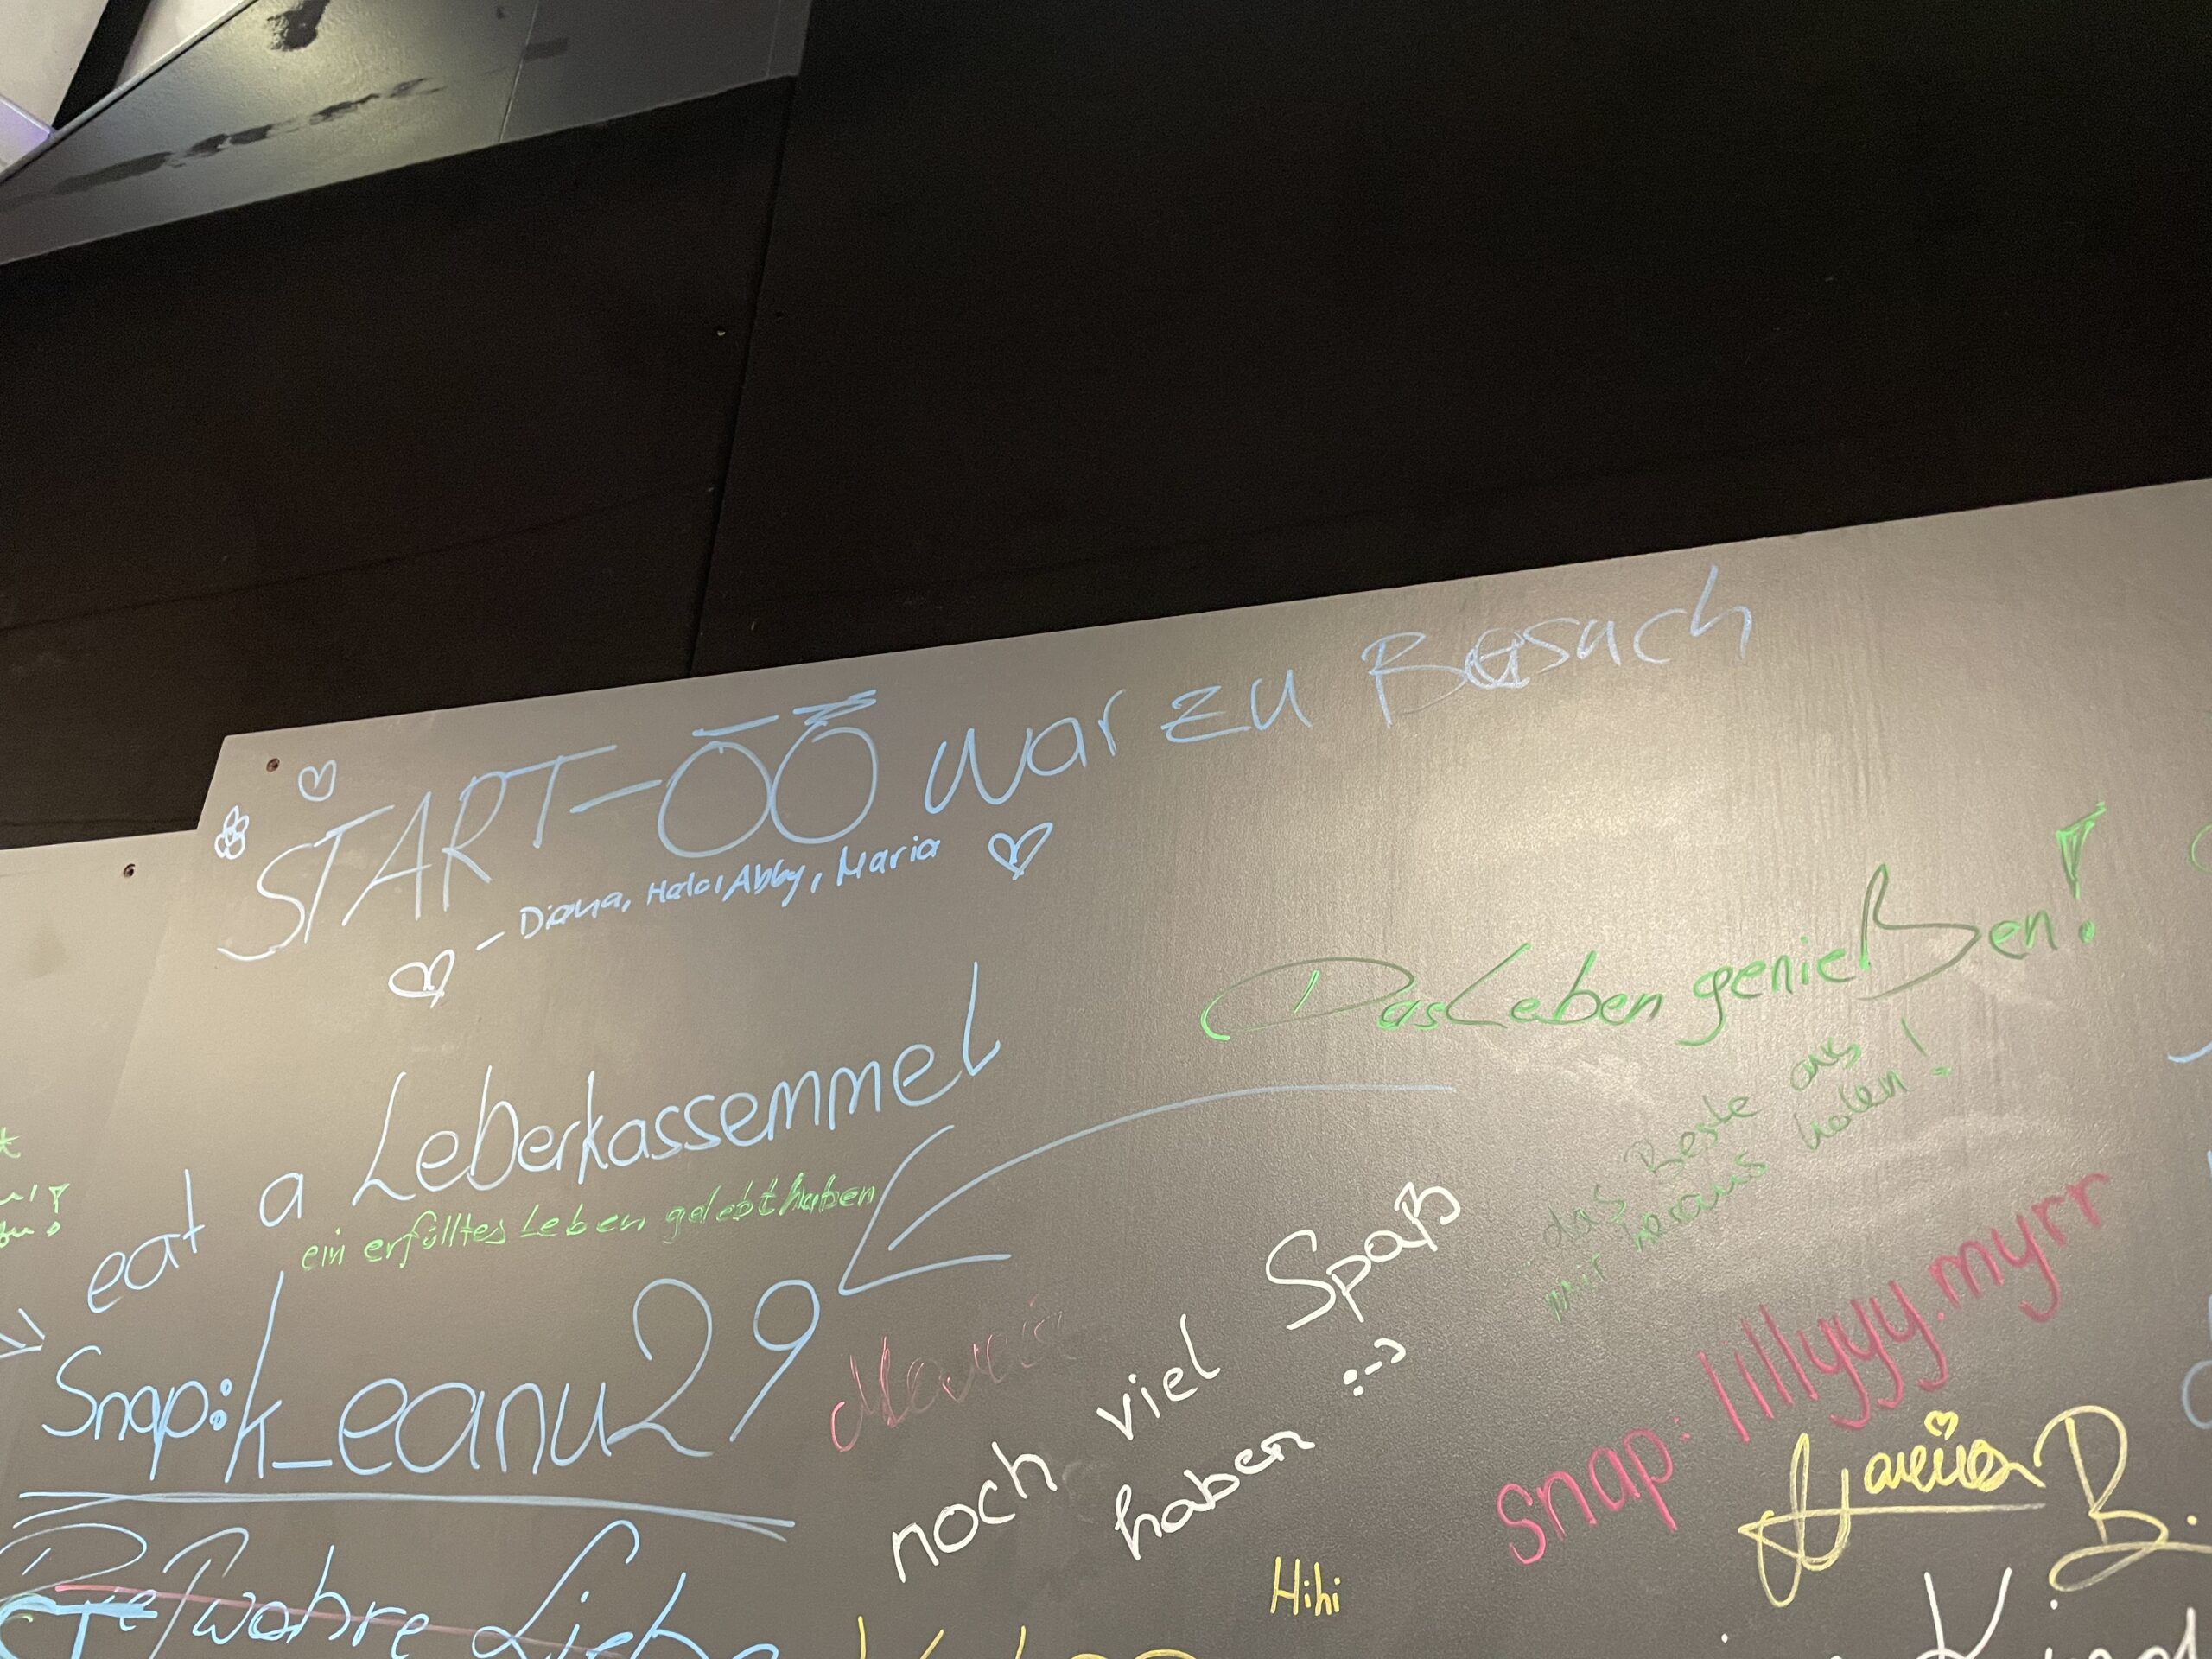 START-ÖÖ war zu Besuch
- Diana, Hala, Abby, Maria
Das Leben genießen!
das Beste aus
mir heraus holen!
eat a Leberkassemmel
ein erfülltes Leben gelebt haben
Snap: k_eanu29
noch viel Spaß
haben :-)
snap: lillyyy.myrr
B.
Hihi
Die wahre Liebe